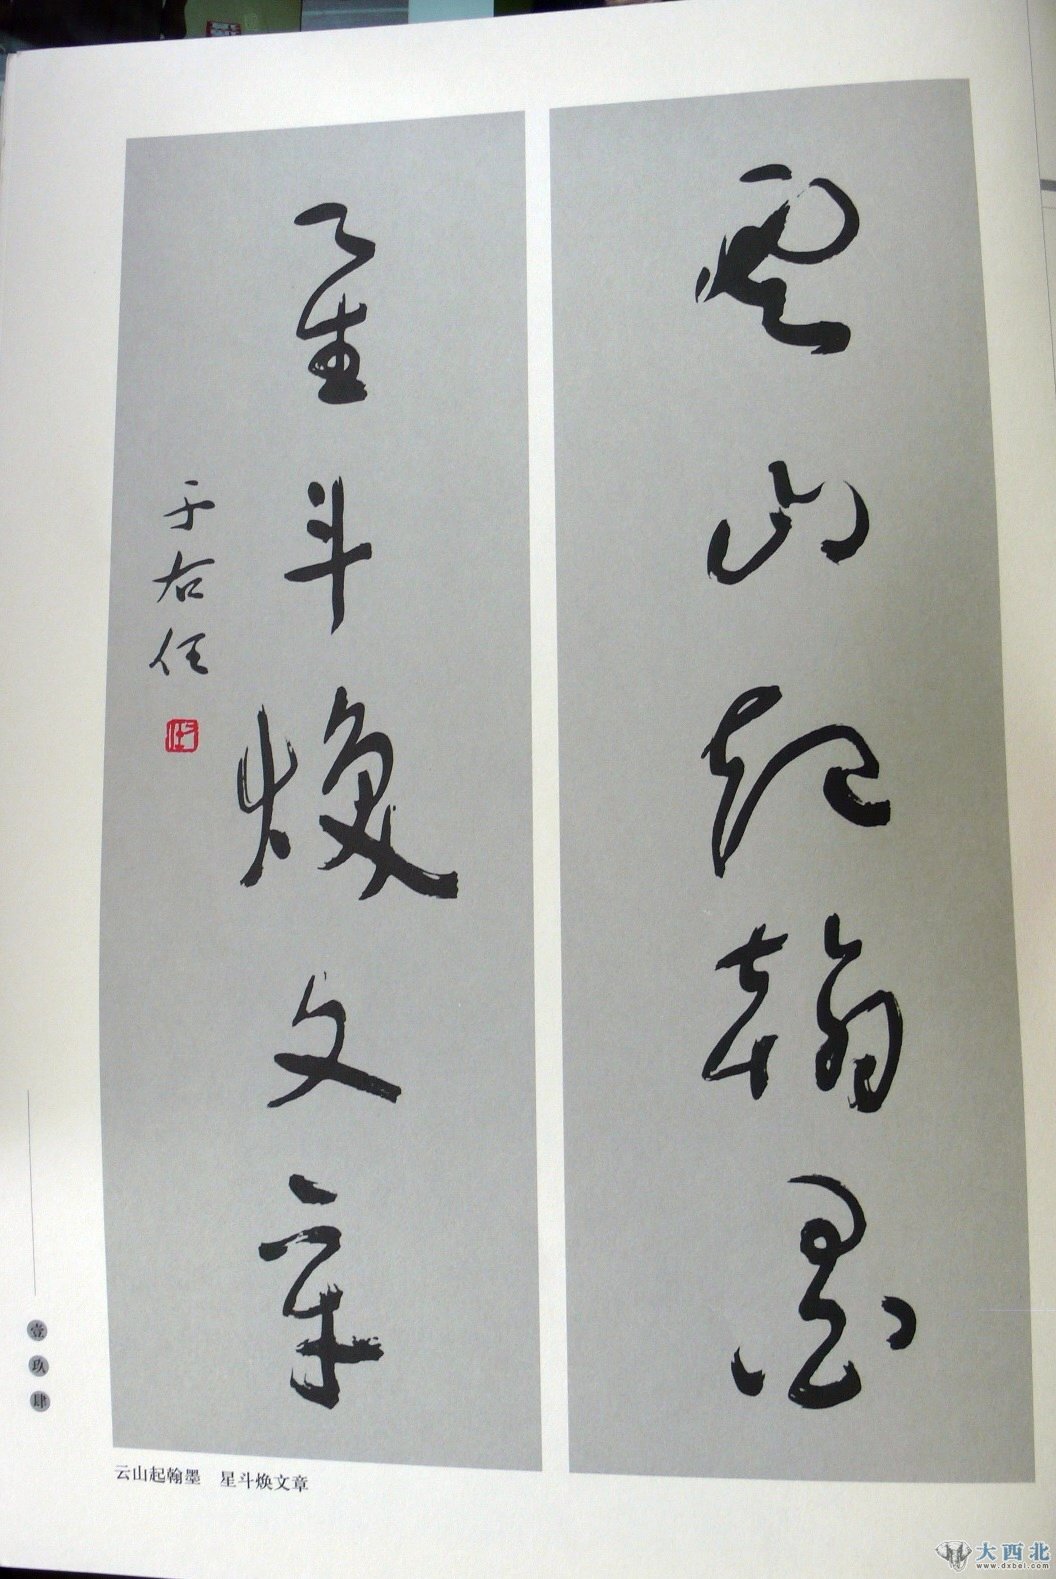 雲山起翰墨
星斗焕文章
于右任
云山起翰墨 星斗焕文章
壹玖肆
大西北
www.dxbei.com